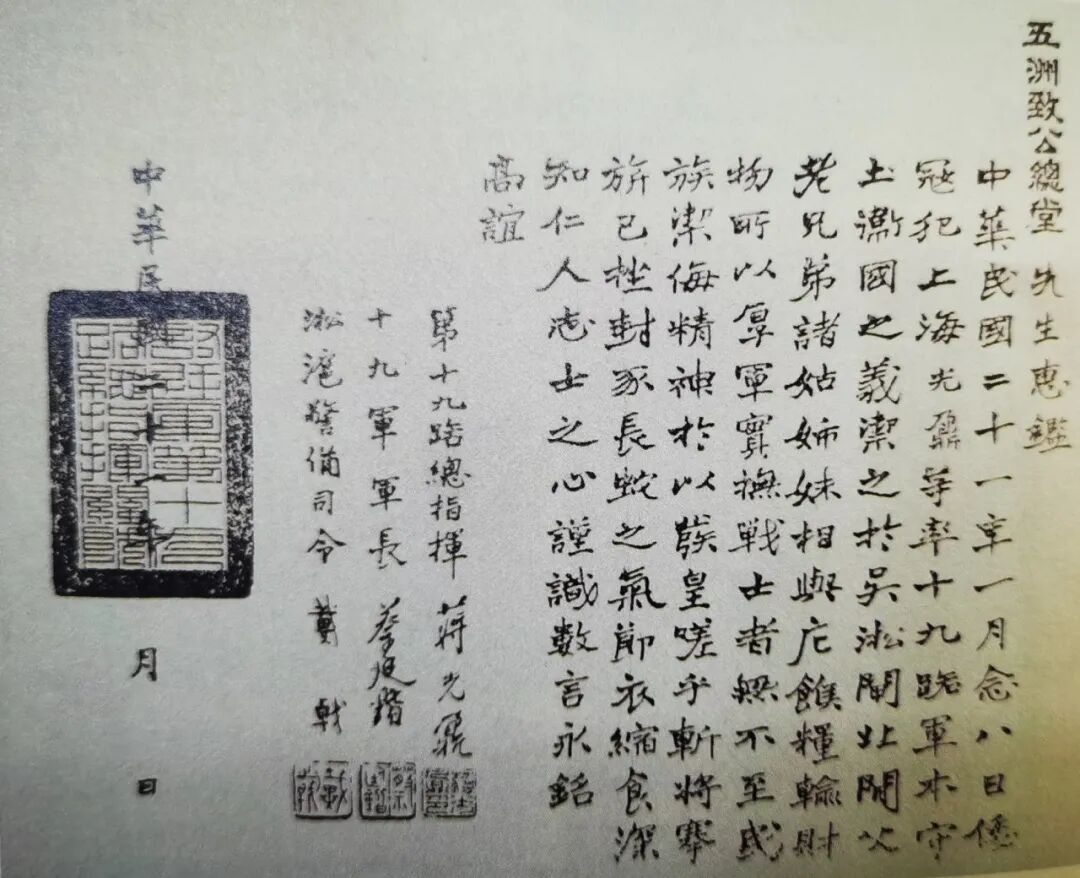 五洲致公總堂 先生惠鑑
中華民國二十一年一月念八日倭
寇犯上海光鼐等率十九路軍本守
土衛國之義禦之於吳淞閘北間父
老兄弟諸姑姊妹相與庀餱糧輸財
物所以厚軍實撫戰士者無不至民
族禦侮精神於以發皇嗟乎斬將搴
旂已挫封豕長蛇之氣節衣縮食深
知仁人志士之心謹識數言永銘
高誼
第十九路總指揮 蔣光鼐
十九軍軍長 蔡廷鍇
淞滬警備司令 戴戟
中華民國二十一年 月 日